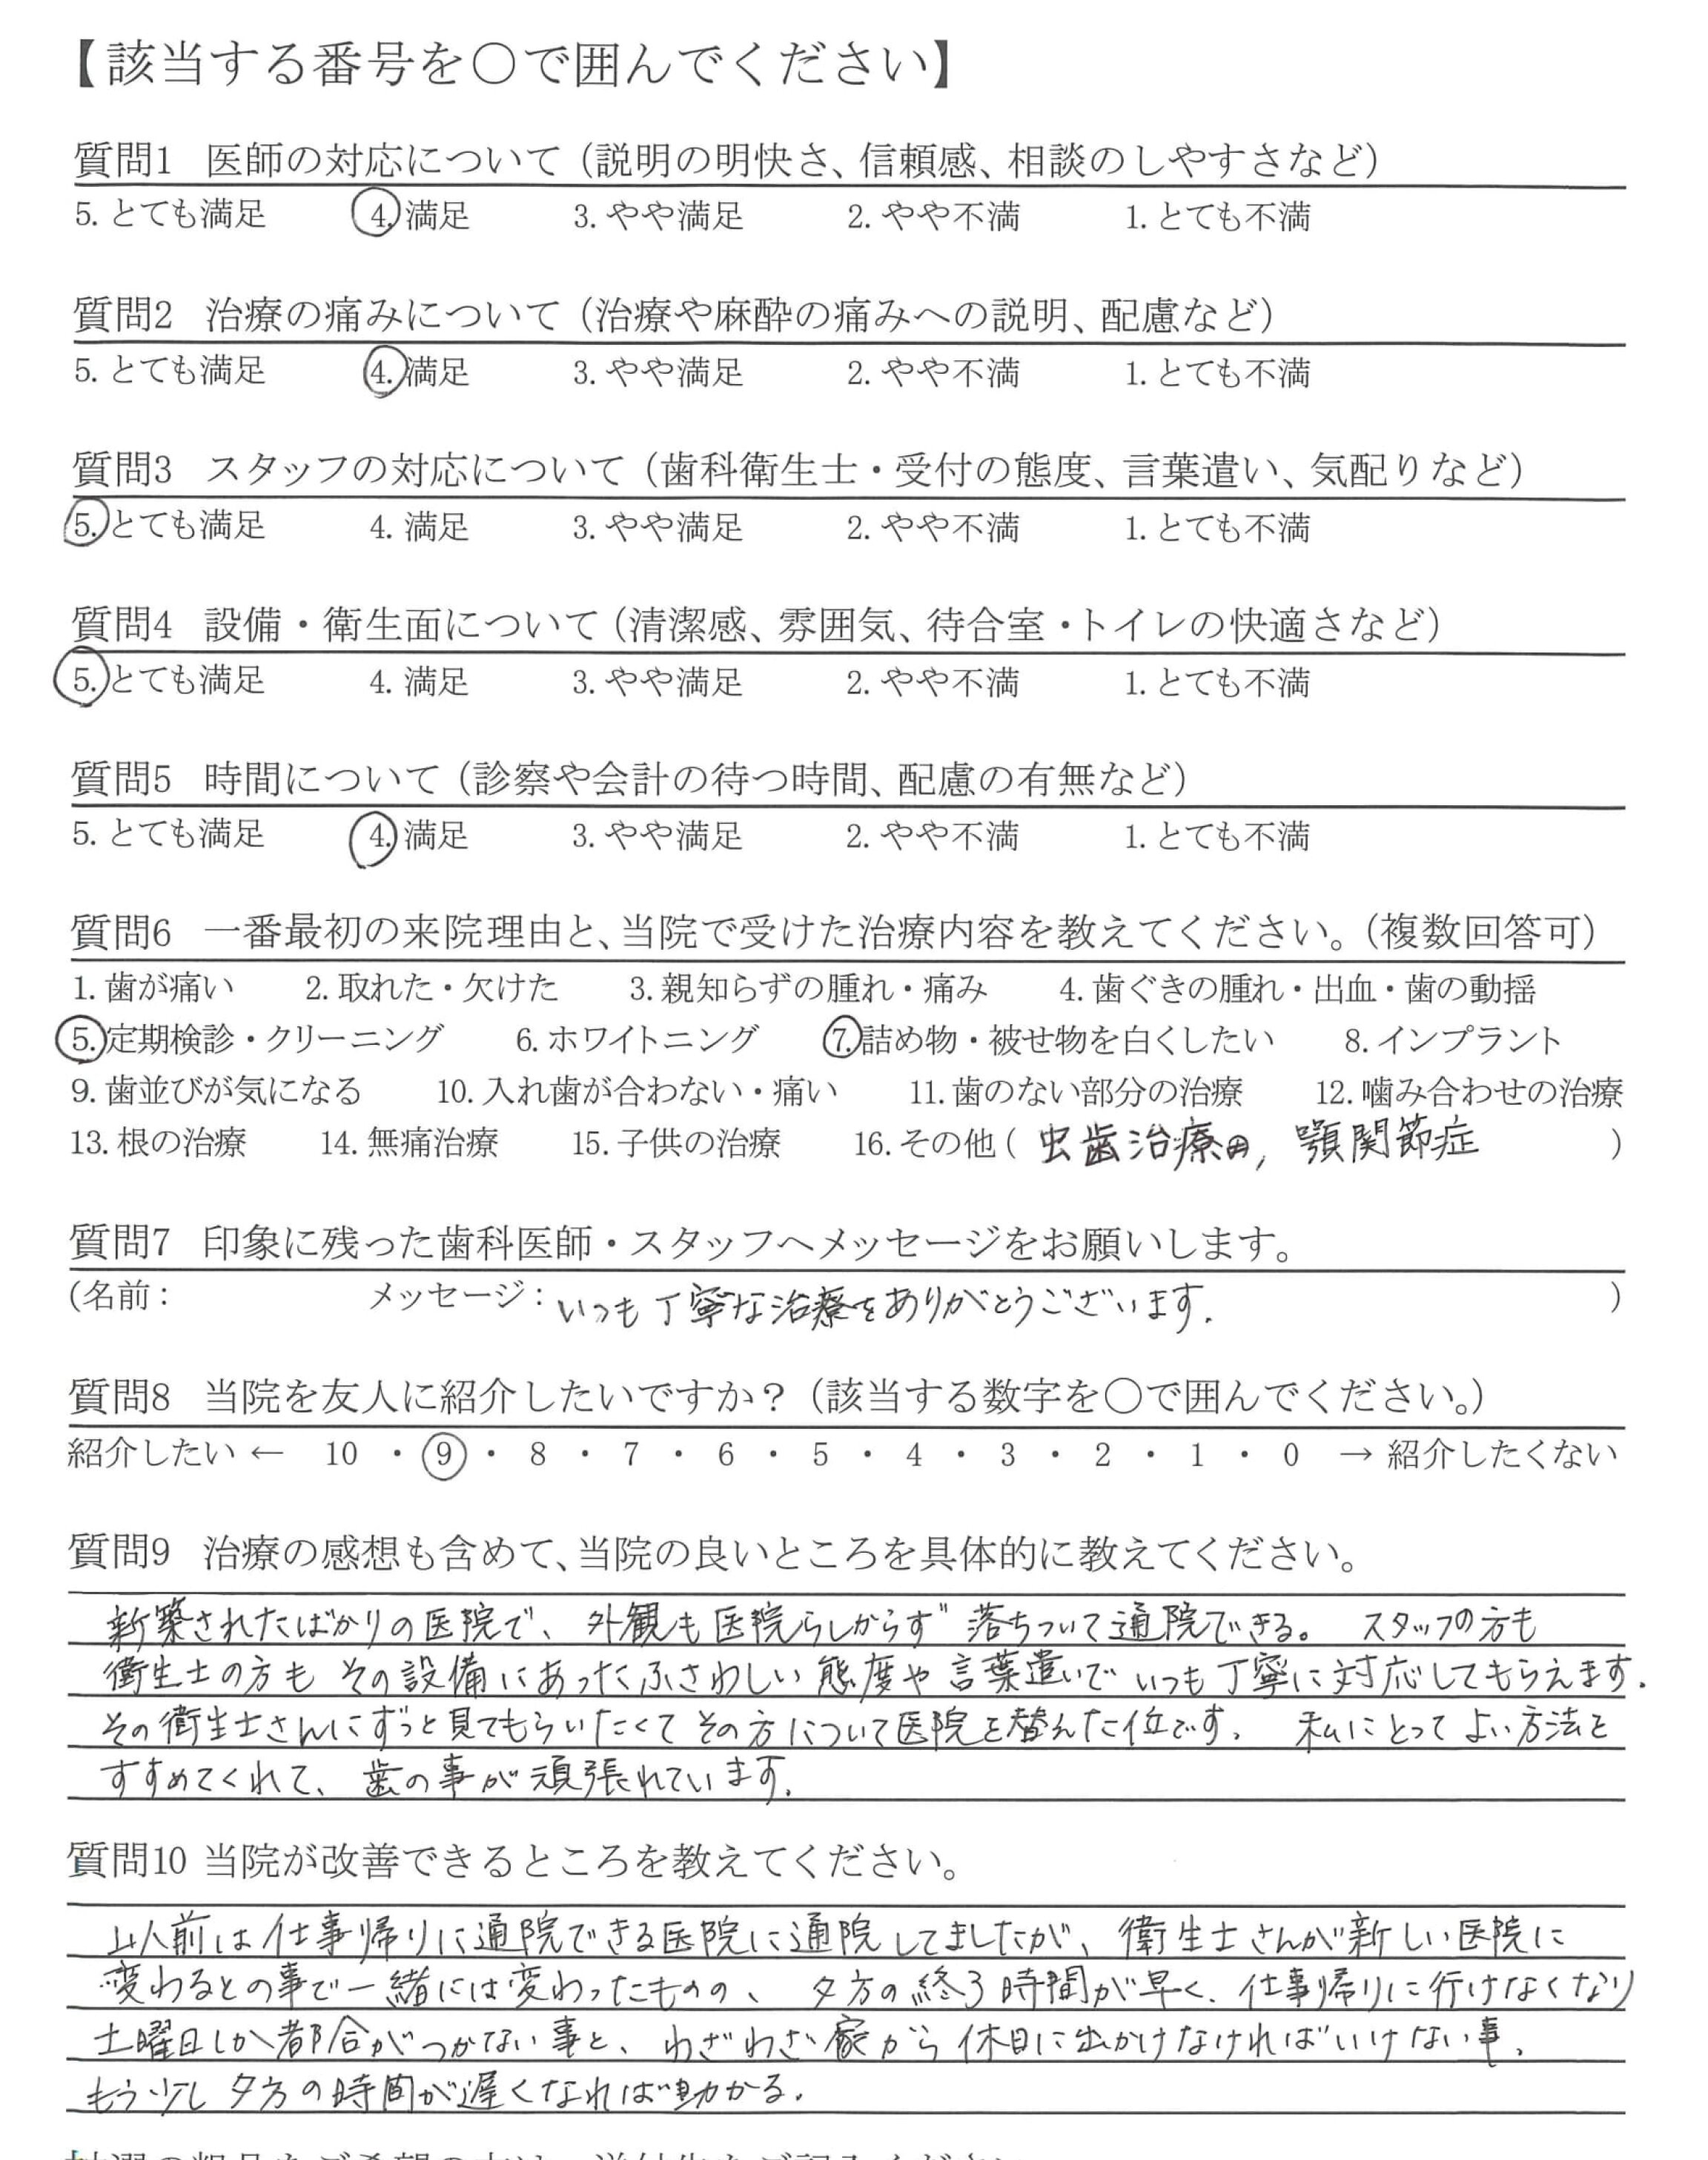 【該当する番号を○で囲んでください】
質問1 医師の対応について（説明の明快さ、信頼感、相談のしやすさなど）
5. とても満足 4. 満足 3. やや満足 2. やや不満 1. とても不満
質問2 治療の痛みについて（治療や麻酔の痛みへの説明、配慮など）
5. とても満足 4. 満足 3. やや満足 2. やや不満 1. とても不満
質問3 スタッフの対応について（歯科衛生士・受付の態度、言葉遣い、気配りなど）
5. とても満足 4. 満足 3. やや満足 2. やや不満 1. とても不満
質問4 設備・衛生面について（清潔感、雰囲気、待合室・トイレの快適さなど）
5. とても満足 4. 満足 3. やや満足 2. やや不満 1. とても不満
質問5 時間について（診察や会計の待つ時間、配慮の有無など）
5. とても満足 4. 満足 3. やや満足 2. やや不満 1. とても不満
質問6 一番最初の来院理由と、当院で受けた治療内容を教えてください。（複数回答可）
1. 歯が痛い 2. 取れた・欠けた 3. 親知らずの腫れ・痛み 4. 歯ぐきの腫れ・出血・歯の動揺
5. 定期検診・クリーニング 6. ホワイトニング 7. 詰め物・被せ物を白くしたい 8. インプラント
9. 歯並びが気になる 10. 入れ歯が合わない・痛い 11. 歯のない部分の治療 12. 噛み合わせの治療
13. 根の治療 14. 無痛治療 15. 子供の治療 16. その他（虫歯治療, 顎関節症）
質問7 印象に残った歯科医師・スタッフへメッセージをお願いします。
(名前： メッセージ：いつも丁寧な治療をありがとうございます.）
質問8 当院を友人に紹介したいですか？（該当する数字を○で囲んでください。）
紹介したい ← 10 ・ 9 ・ 8 ・ 7 ・ 6 ・ 5 ・ 4 ・ 3 ・ 2 ・ 1 ・ 0 → 紹介したくない
質問9 治療の感想も含めて、当院の良いところを具体的に教えてください。
新築されたばかりの医院で、外観も医院らしからず落ちついて通院できる。 スタッフの方も
衛生士の方も その設備にあったふさわしい態度や言葉遣いでいつも丁寧に対応してもらえます.
その衛生士さんにずっと見てもらいたくてその方について医院を替えた位です. 私にとってよい方法を
すすめてくれて、歯の事が頑張れています.
質問10 当院が改善できるところを教えてください。
以前は仕事帰りに通院できる医院に通院してましたが、衛生士さんが新しい医院に
変わるとの事で一緒には変わったものの、夕方の終了時間が早く、仕事帰りに行けなくなり
土曜日しか都合がつかない事と、わざわざ家から休日に出かけなければいけない事.
もう少し夕方の時間が遅くなれば助かる.